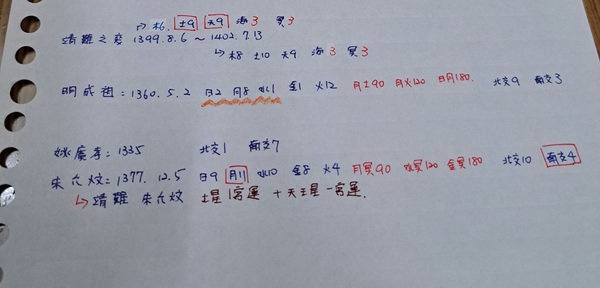 ↱ 木6, 土9 天9 海3 冥3
靖難之役 1399.8.6 ~ 1402.7.13
↳ 木8 土10 天9 海3 冥3
明成祖: 1360.5.2 日2 月8 水1 金1 火12 月土90 月火120 日月180. 北交9 南交3
姚廣孝: 1335 北交1 南交7
朱允炆: 1377.12.5 日9 月11 水10 金8 火4 月冥90 水冥120 金冥180 北交10 南交4
↳ 靖難 朱允炆 土星1宮運 + 天王星一宮運.